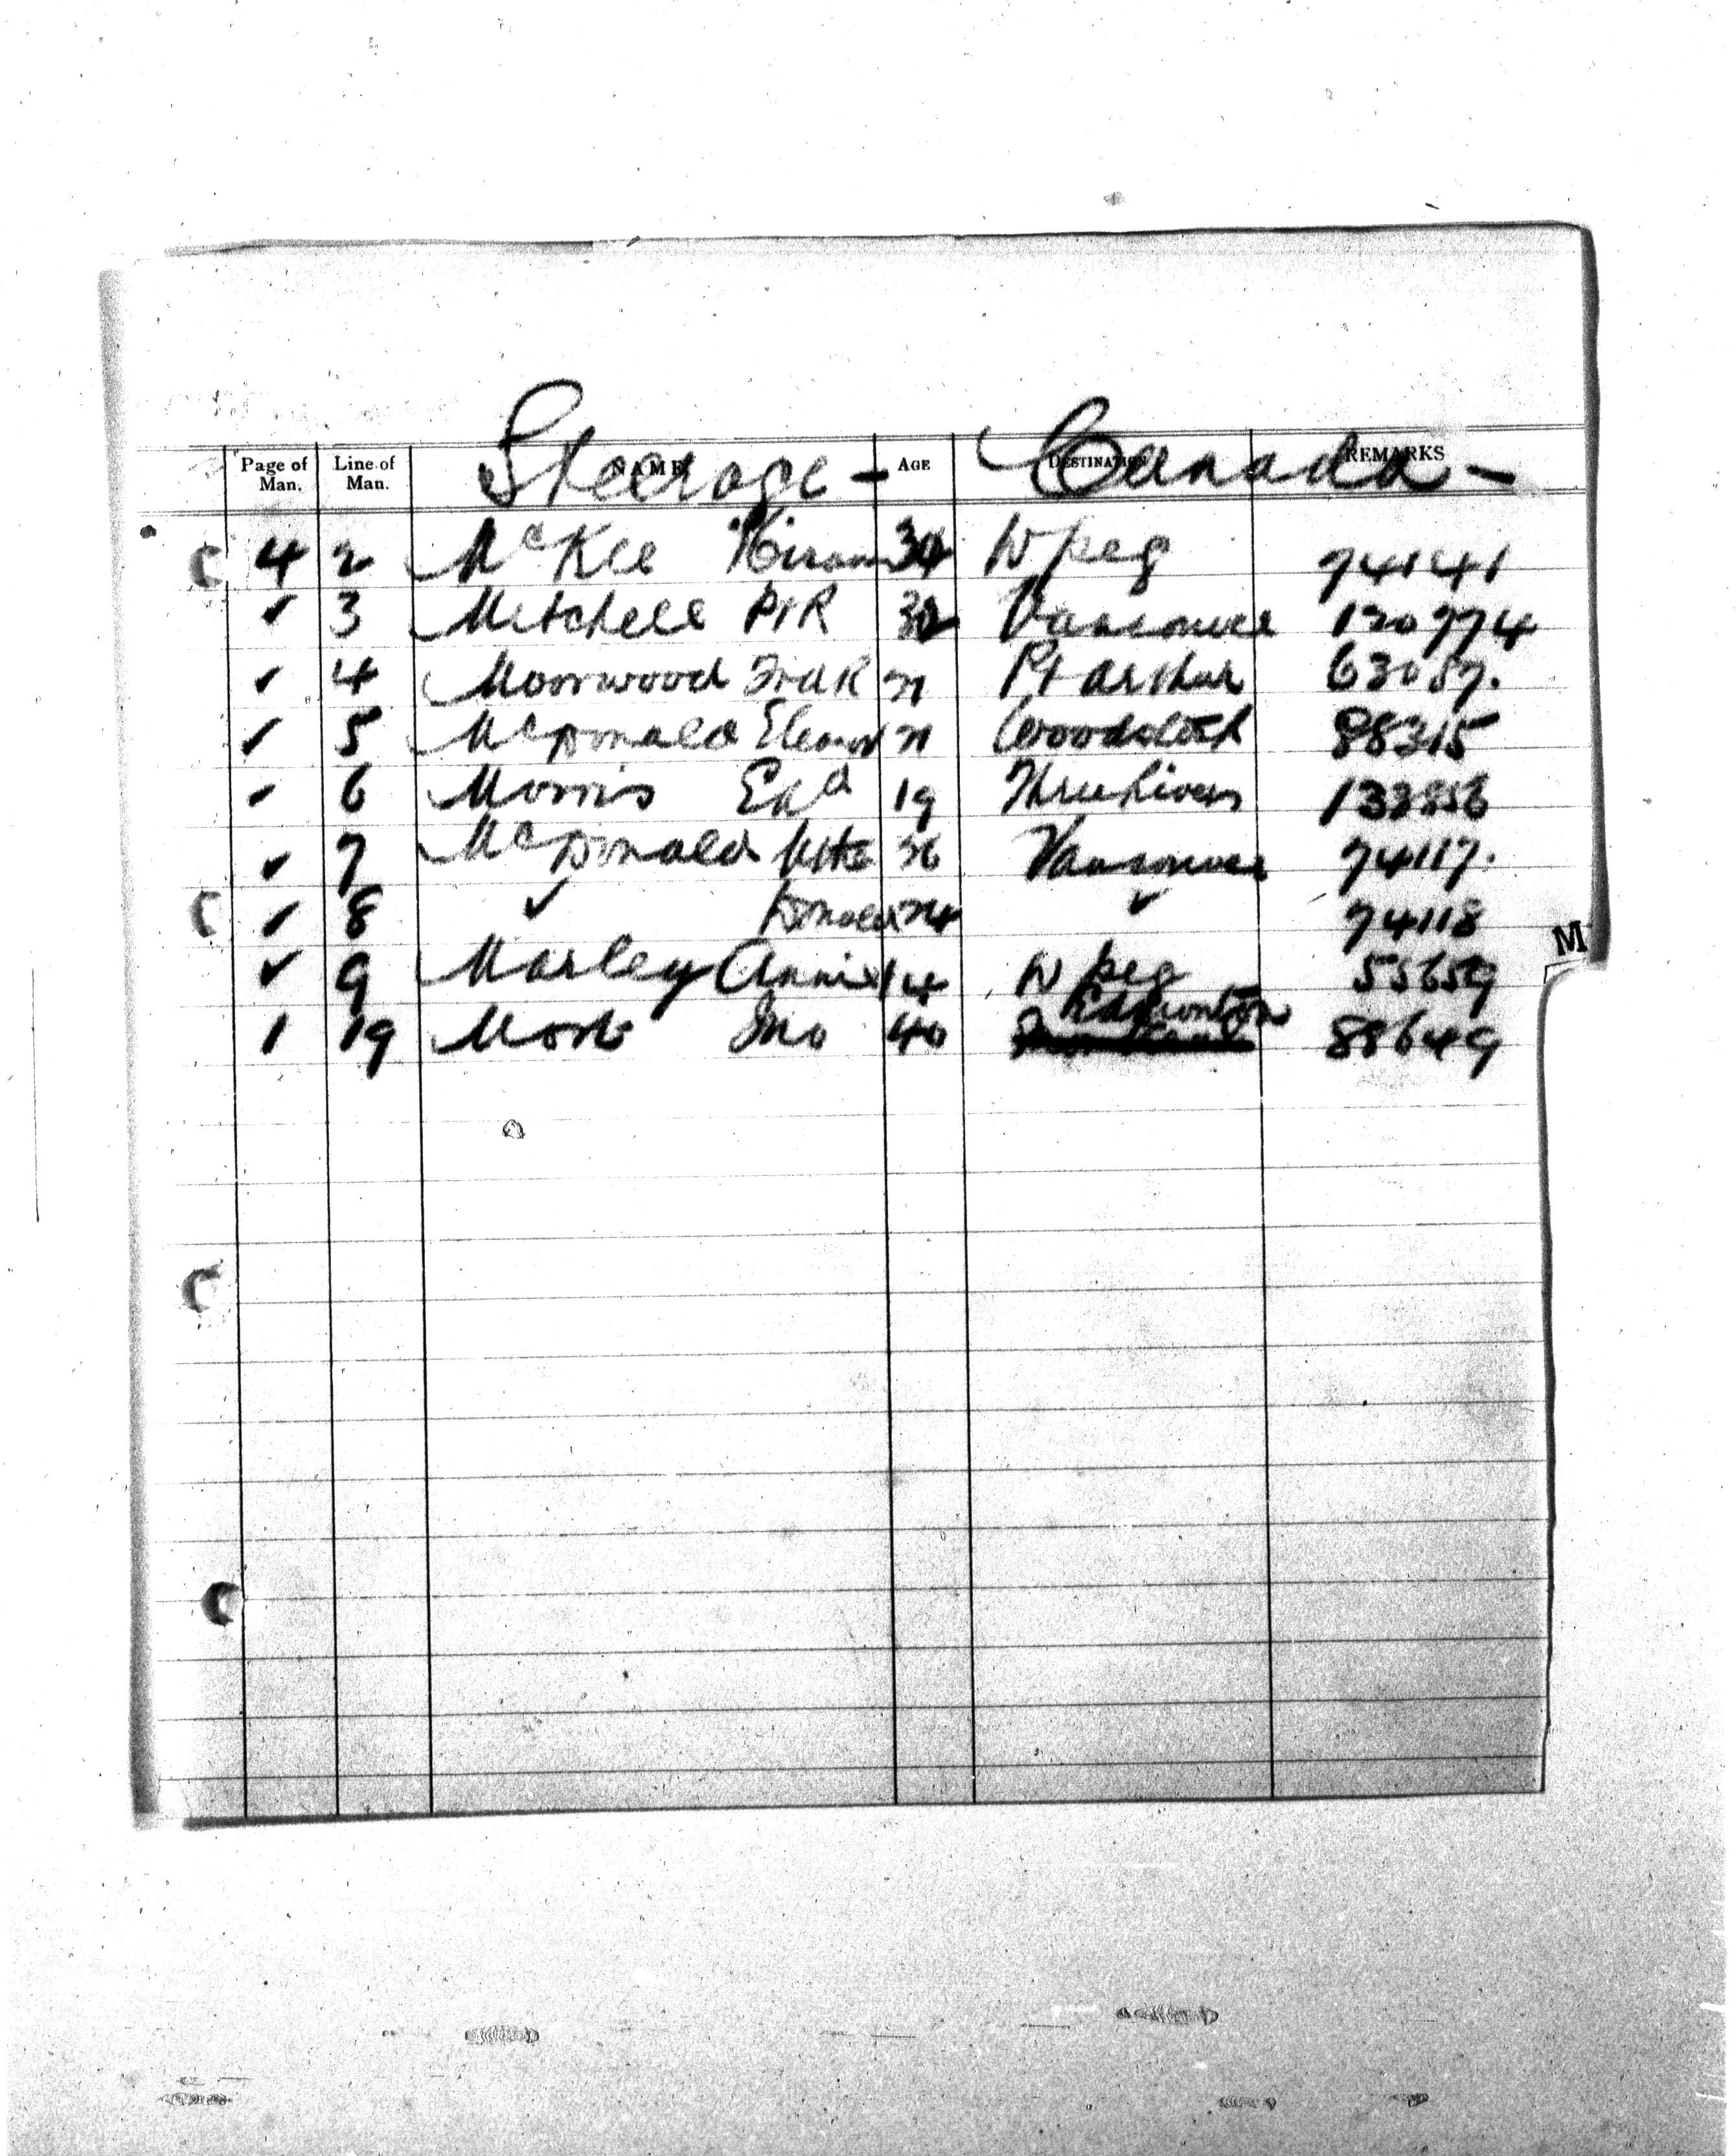 Steerage - Canada -
Page of Man. Line of Man. NAME AGE DESTINATION REMARKS
4 2 McKee Hiram 34 Wpeg 74141
✓ 3 Mitchell 32 Vancouver 120774
✓ 4 Moorwood 21 Pt Arthur 63057.
✓ 5 McDonald Eleanor 21 Woodstock 88315
✓ 6 Morris 19 Three Rivers
✓ 7 McDonald 26 Vancouver 74117.
✓ 8 ✓ Donald 24 ✓ 74118
✓ 9 Marley Annie 14 Wpeg 55659
M
1 19 Jno 40 Edmonton 88649